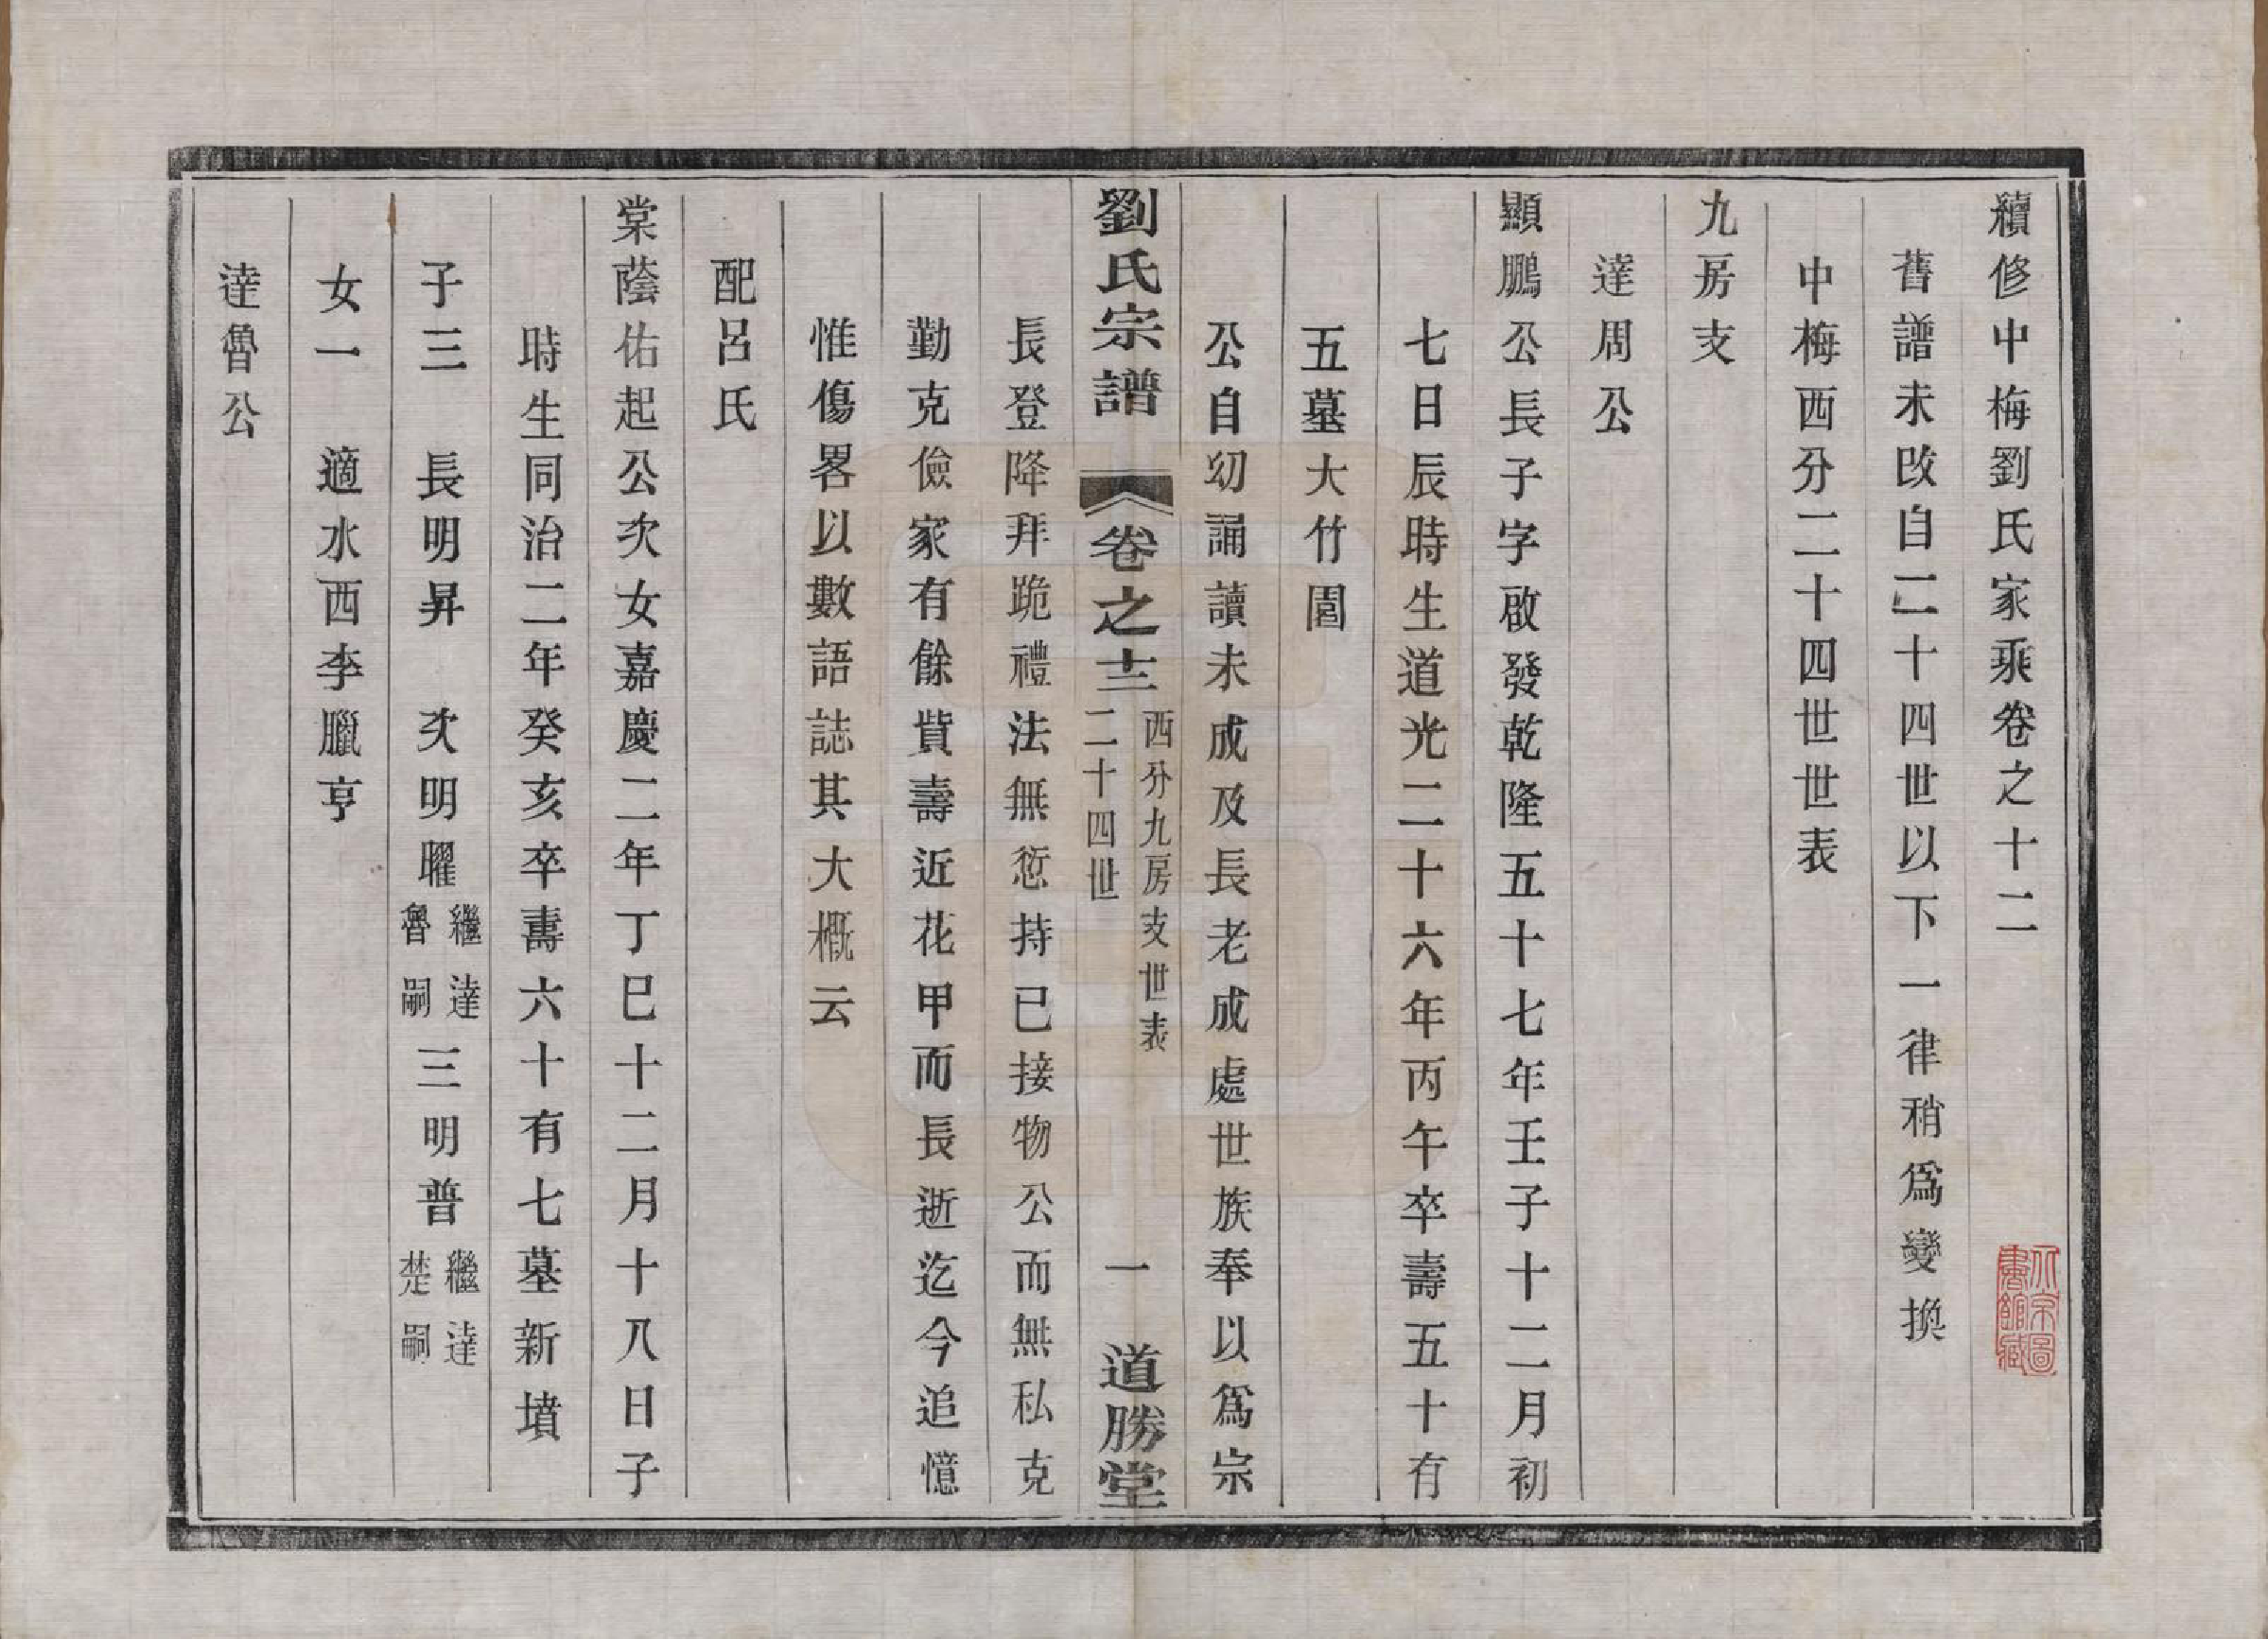 續修中梅劉氏家乘卷之十二
舊譜未改自二十四世以下一律稍爲變換
中梅西分二十四世世表
九房支
達周公
顯鵬公長子字啟發乾隆五十七年壬子十二月初
七日辰時生道光二十六年丙午卒壽五十有
五墓大竹園
公自幼誦讀未成及長老成處世族奉以爲宗
劉氏宗譜 卷之十二 西分九房支世表
二十四世 一 道勝堂
長登降拜跪禮法無愆持已接物公而無私克
勤克儉家有餘貲壽近花甲而長逝迄今追憶
惟傷畧以數語誌其大概云
配呂氏
棠蔭佑起公次女嘉慶二年丁巳十二月十八日子
時生同治二年癸亥卒壽六十有七墓新墳
子三 長明昇 次明曜 繼達魯嗣 三明普 繼達楚嗣
女一 適水西李臘亨
達魯公
北京圖書館藏